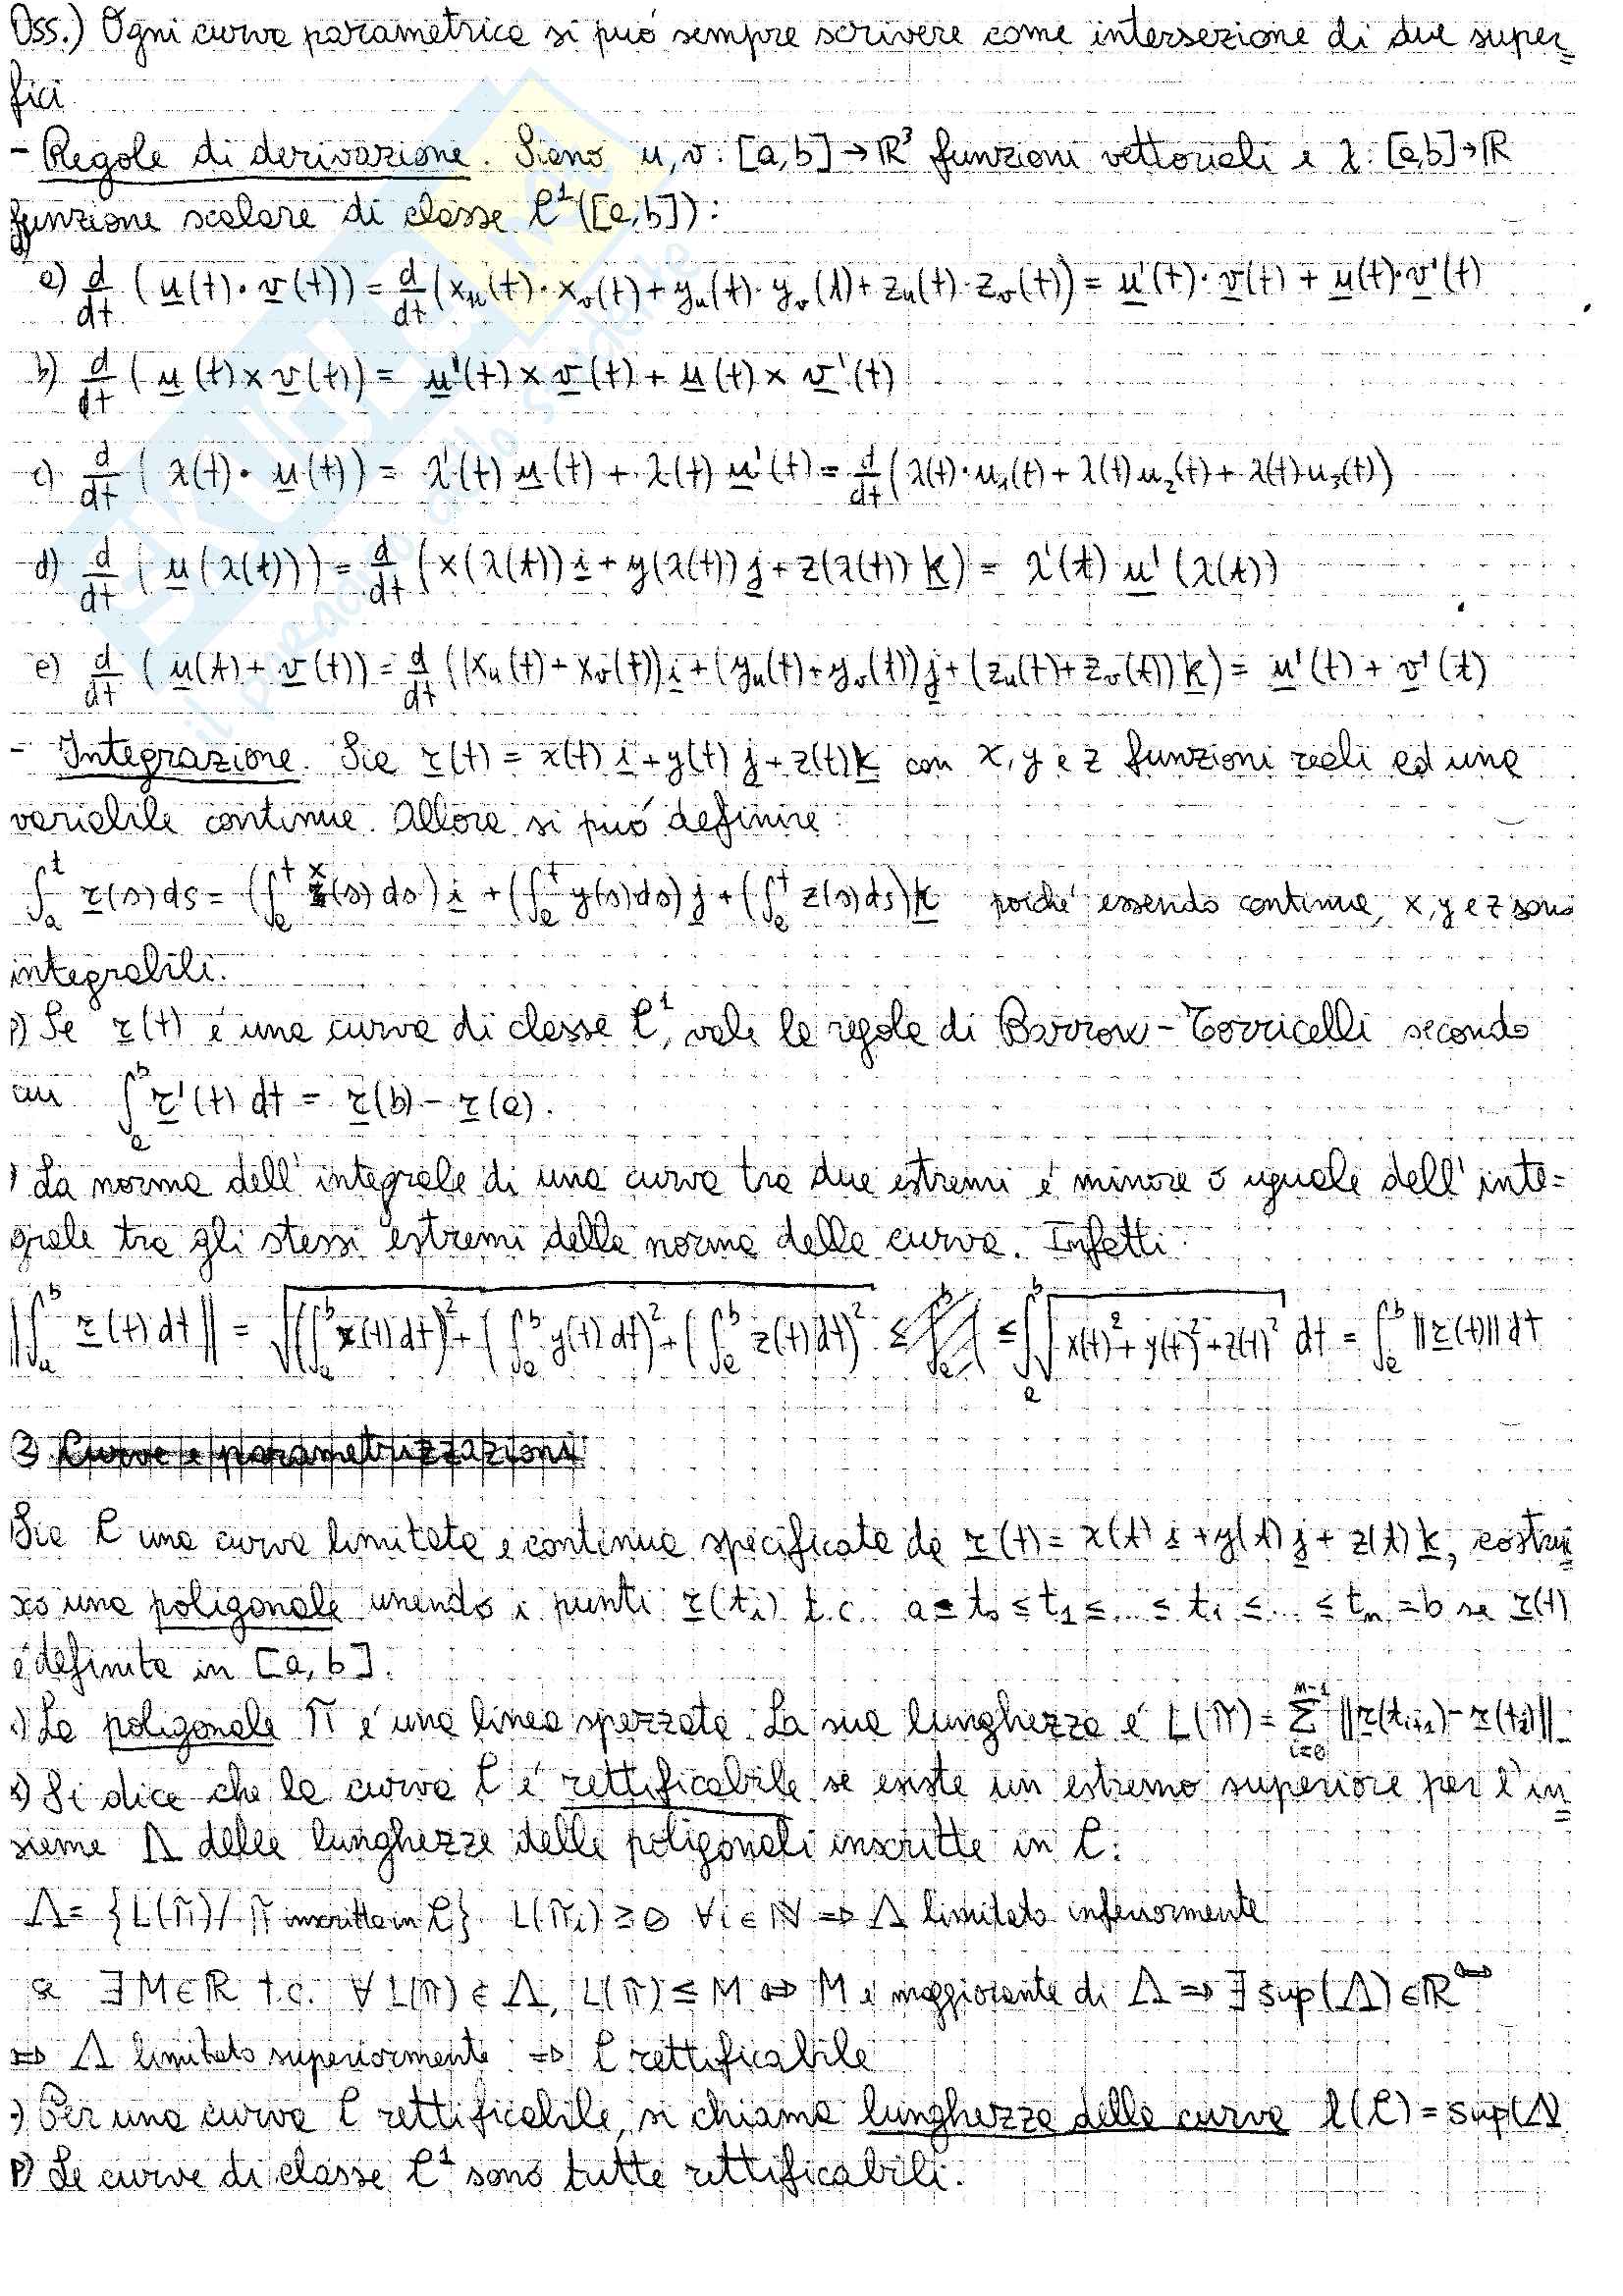 Oss.) Ogni curva parametrica si può sempre scrivere come intersezione di due super=
fici.
- Regole di derivazione. Siano u, v : [a,b] → ℝ³ funzioni vettoriali e λ : [a,b] → ℝ
funzione scalare di classe C¹([a,b]):
a) d/dt (u(t)·v(t)) = d/dt (x_u(t)·x_v(t) + y_u(t)·y_v(t) + z_u(t)·z_v(t)) = u'(t)·v(t) + u(t)·v'(t)
b) d/dt (u(t) × v(t)) = u'(t) × v(t) + u(t) × v'(t)
c) d/dt (λ(t)·u(t)) = λ'(t) u(t) + λ(t) u'(t) = d/dt (λ(t)·u₁(t) + λ(t) u₂(t) + λ(t) u₃(t))
d) d/dt (u(λ(t))) = d/dt (x(λ(t)) i + y(λ(t)) j + z(λ(t)) k) = λ'(t) u'(λ(t))
e) d/dt (u(t) + v(t)) = d/dt ((x_u(t) + x_v(t)) i + (y_u(t) + y_v(t)) j + (z_u(t) + z_v(t)) k) = u'(t) + v'(t)
- Integrazione. Sia r(t) = x(t) i + y(t) j + z(t) k con x, y e z funzioni reali ad una
variabile continue. Allora si può definire:
∫_a^t r(s) ds = (∫_a^t x(s) ds) i + (∫_a^t y(s) ds) j + (∫_a^t z(s) ds) k poiché essendo continue, x, y e z sono
integrabili.
P) Se r(t) è una curva di classe C¹, vale la regola di Barrow - Torricelli secondo
cui ∫_a^b r'(t) dt = r(b) - r(a).
) La norma dell'integrale di una curva tra due estremi è minore o uguale dell'inte=
grale tra gli stessi estremi della norma della curva. Infatti:
‖∫_a^b r(t) dt‖ = √((∫_a^b x(t) dt)² + (∫_a^b y(t) dt)² + (∫_a^b z(t) dt)²) ≤ ∫_a^b √(x(t)² + y(t)² + z(t)²) dt = ∫_a^b ‖r(t)‖ dt
2) Curve e parametrizzazioni
Sia C una curva limitata e continua specificata da r(t) = x(t) i + y(t) j + z(t) k, costrui=
sco una poligonale unendo i punti r(t_i) t.c. a = t₀ ≤ t₁ ≤ ... ≤ t_i ≤ ... ≤ t_n = b se r(t)
è definita in [a, b].
.) La poligonale π è una linea spezzata. La sua lunghezza è L(π) = Σ_{i=0}^{n-1} ‖r(t_{i+1}) - r(t_i)‖
.) Si dice che la curva C è rettificabile se esiste un estremo superiore per l'in=
sieme Λ delle lunghezze delle poligonali inscritte in C:
Λ = {L(π) / π inscritta in C} L(π_i) ≥ 0 ∀i ∈ ℕ ⇒ Λ limitato inferiormente
se ∃ M ∈ ℝ t.c. ∀ L(π) ∈ Λ, L(π) ≤ M ⇔ M è maggiorante di Λ ⇒ ∃ sup(Λ) ∈ ℝ ⇔
⇒ Λ limitato superiormente ⇒ C rettificabile
.) Per una curva C rettificabile, si chiama lunghezza della curva l(C) = sup(Λ
P) Le curve di classe C¹ sono tutte rettificabili.